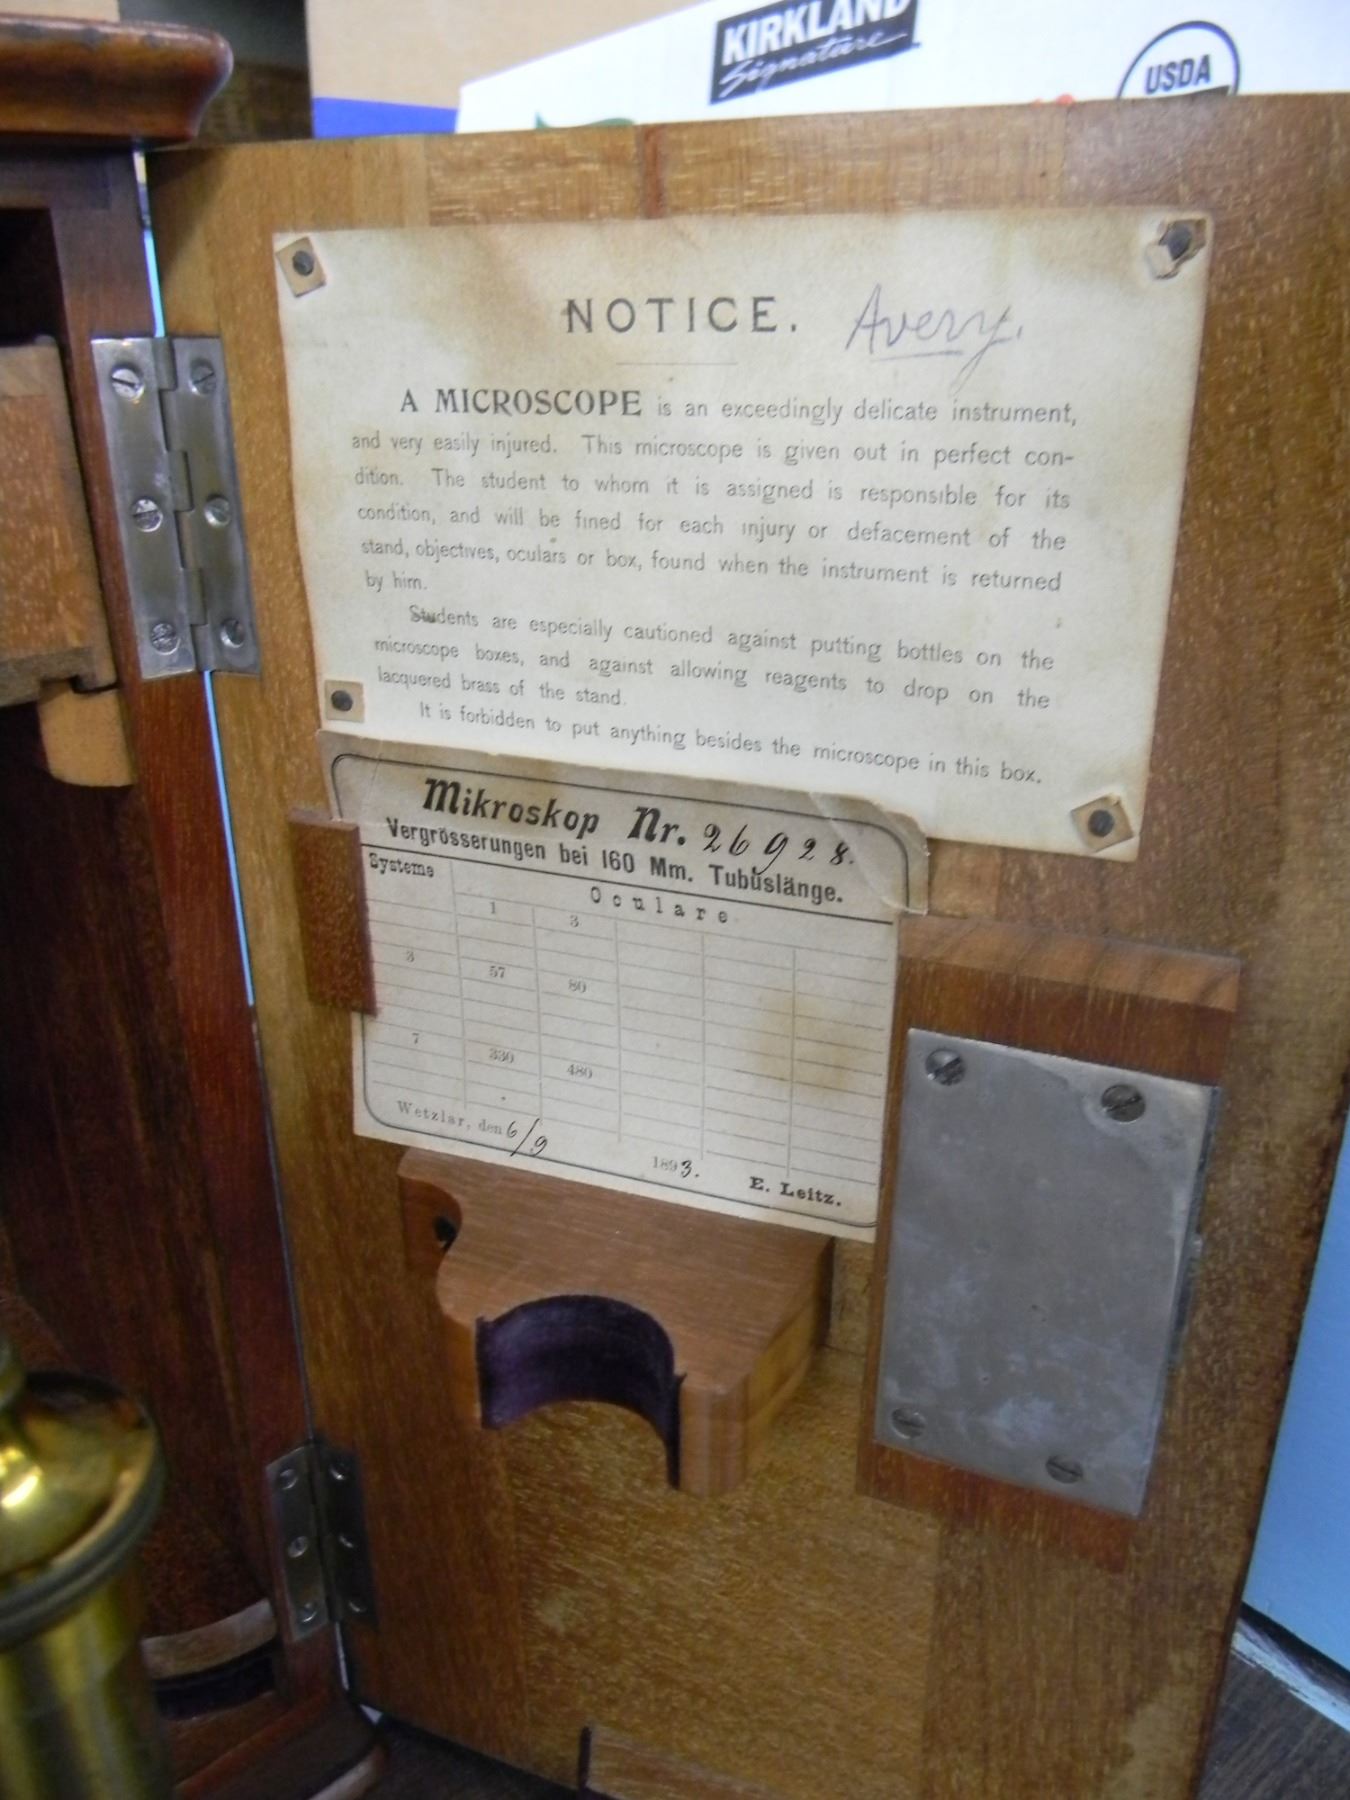 KIRKLAND
Signature
USDA
NOTICE. Avery.
A MICROSCOPE is an exceedingly delicate instrument,
and very easily injured. This microscope is given out in perfect con-
dition. The student to whom it is assigned is responsible for its
condition, and will be fined for each injury or defacement of the
stand, objectives, oculars or box, found when the instrument is returned
by him.
Students are especially cautioned against putting bottles on the
microscope boxes, and against allowing reagents to drop on the
lacquered brass of the stand.
It is forbidden to put anything besides the microscope in this box.
Mikroskop Nr. 26928.
Vergrösserungen bei 160 Mm. Tubuslänge.
Systeme
Oculare
1 3
3 57 80
7 330 480
Wetzlar, den 6/9 1893.
E. Leitz.